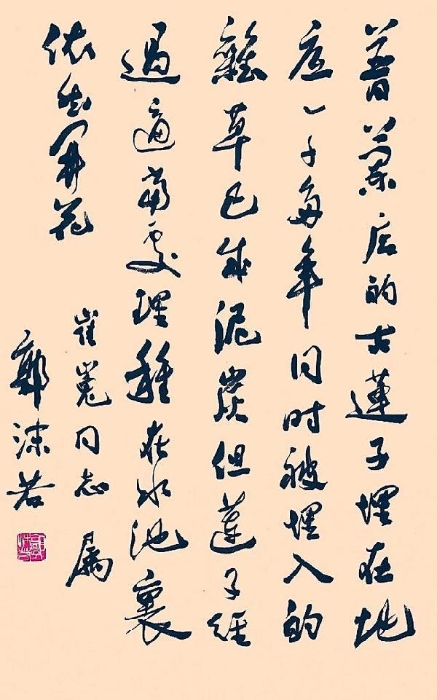 普兰店的古莲子埋在地
底一千多年同时被埋入的
杂草已成泥炭但莲子经
过适当处理种在水池裏
依然开花
崔嵬同志 属
郭沫若